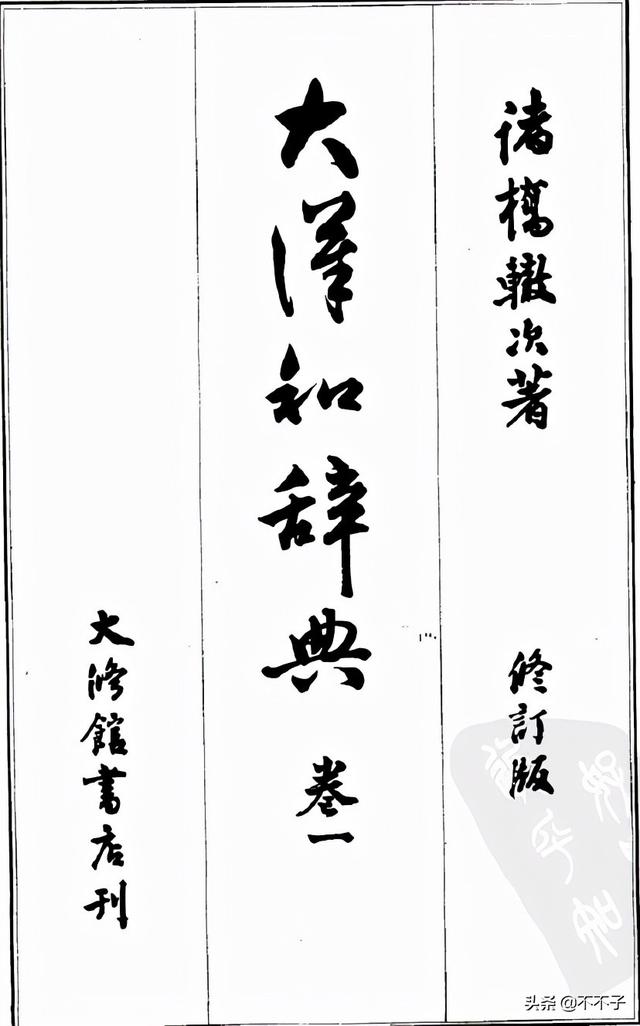 诸橋轍次著
修訂版
大漢和辞典 巻一
大修館書店刊
头条 @不不子